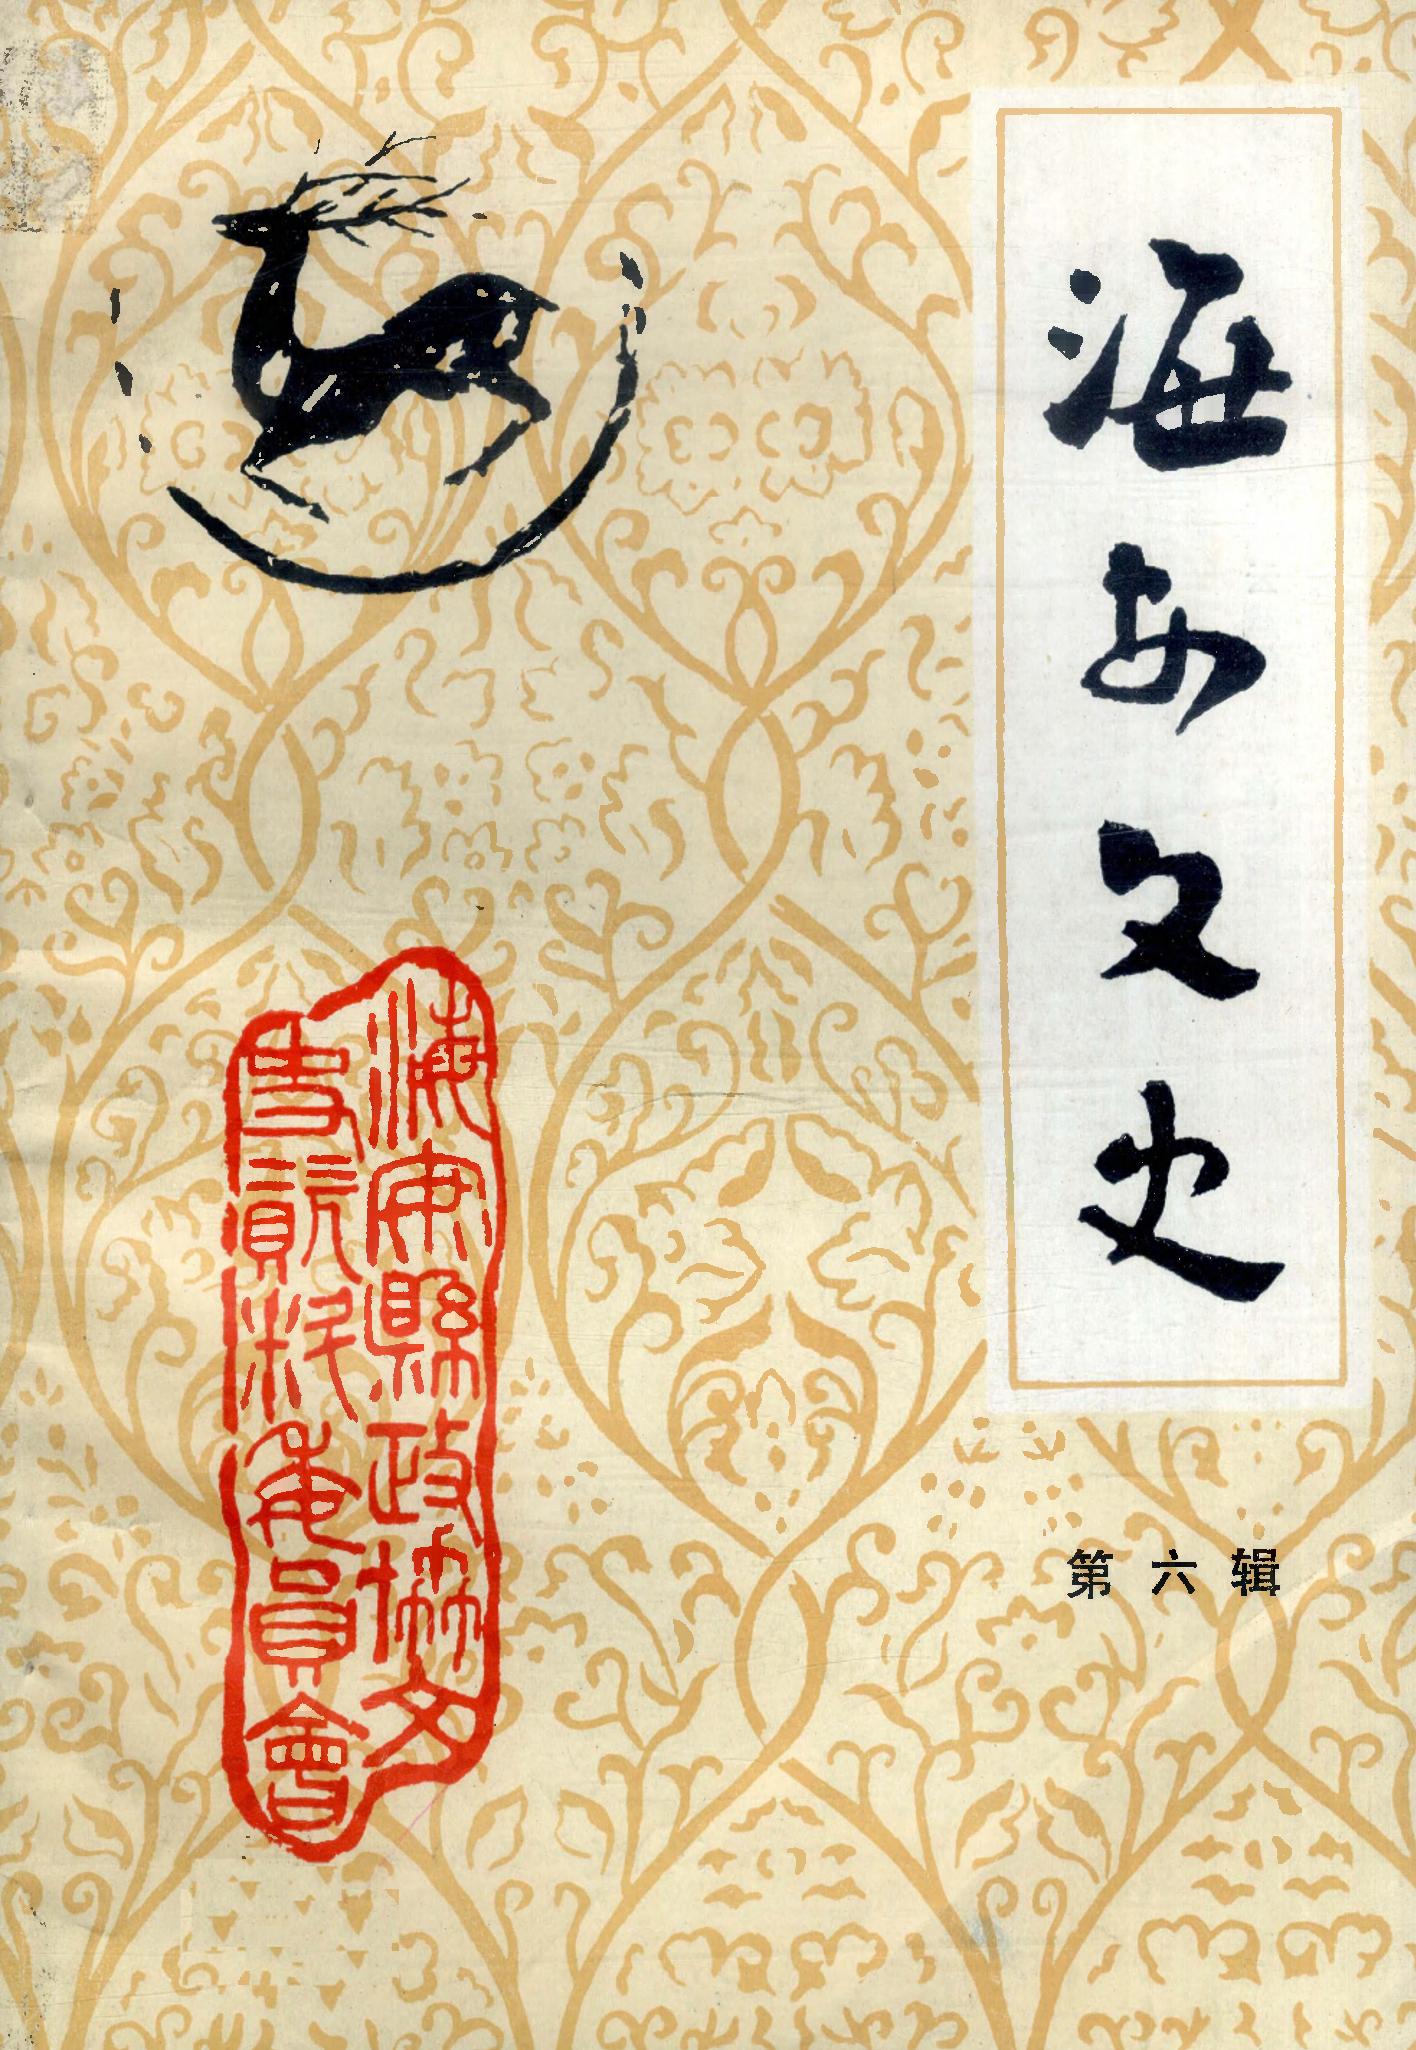 海安文史
第六辑
海安縣政協文
史資料委員會